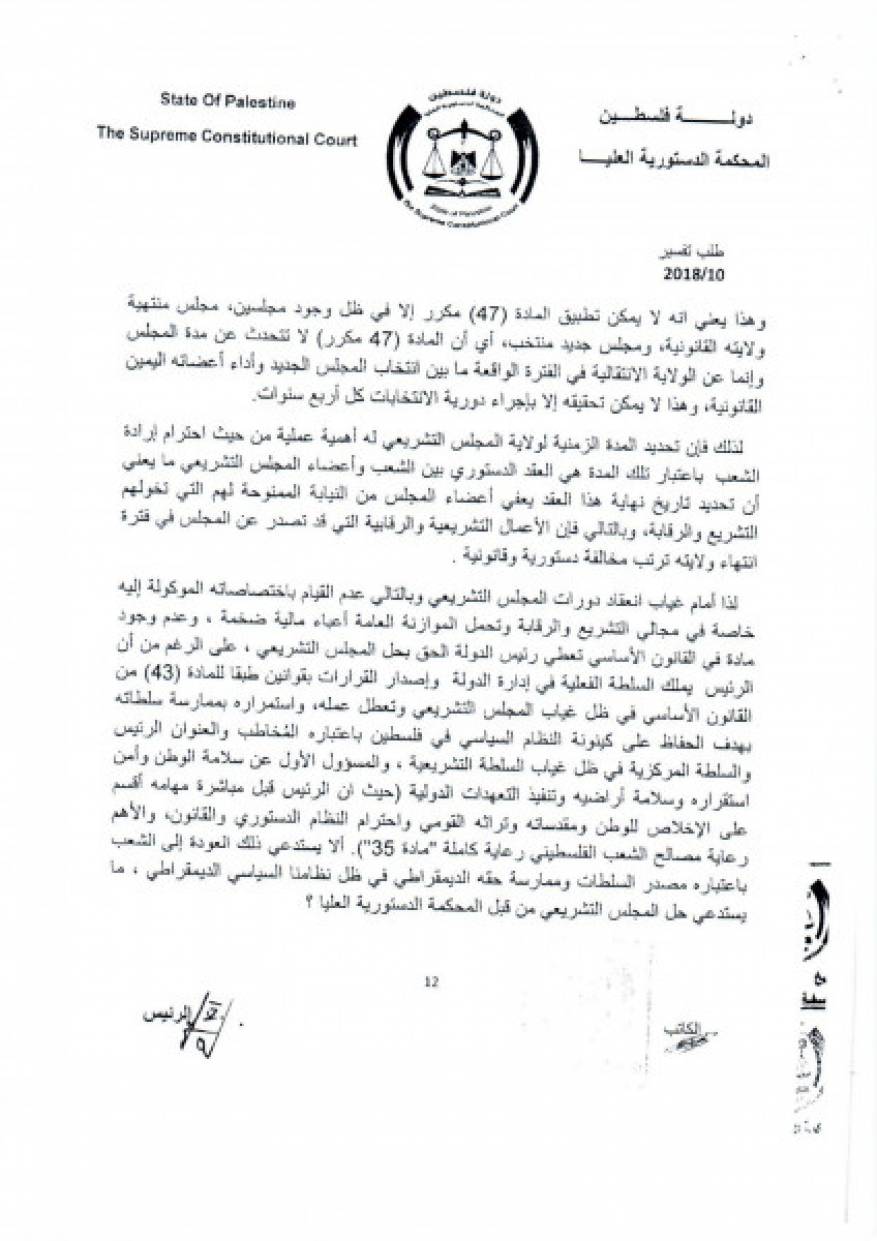 State Of Palestine
The Supreme Constitutional Court
دولة فلسطين
State of Palestine
The Supreme Constitutional Court
دولـــــــة فلسطـــين
المحكمة الدستورية العليـــا
طلب تفسير
2018/10
وهذا يعني انه لا يمكن تطبيق المادة (47) مكرر إلا في ظل وجود مجلسين، مجلس منتهية
ولايته القانونية، ومجلس جديد منتخب، أي أن المادة (47 مكرر) لا تتحدث عن مدة المجلس
وإنما عن الولاية الانتقالية في الفترة الواقعة ما بين انتخاب المجلس الجديد وأداء أعضائه اليمين
القانونية، وهذا لا يمكن تحقيقه إلا بإجراء دورية الانتخابات كل أربع سنوات.
لذلك فإن تحديد المدة الزمنية لولاية المجلس التشريعي له أهمية عملية من حيث احترام إرادة
الشعب باعتبار تلك المدة هي العقد الدستوري بين الشعب وأعضاء المجلس التشريعي ما يعني
أن تحديد تاريخ نهاية هذا العقد يعفي أعضاء المجلس من النيابة الممنوحة لهم التي تخولهم
التشريع والرقابة، وبالتالي فإن الأعمال التشريعية والرقابية التي قد تصدر عن المجلس في فترة
انتهاء ولايته ترتب مخالفة دستورية وقانونية .
لذا أمام غياب انعقاد دورات المجلس التشريعي وبالتالي عدم القيام باختصاصاته الموكولة إليه
خاصة في مجالي التشريع والرقابة وتحمل الموازنة العامة أعباء مالية ضخمة ، وعدم وجود
مادة في القانون الأساسي تعطي رئيس الدولة الحق بحل المجلس التشريعي ، على الرغم من أن
الرئيس يملك السلطة الفعلية في إدارة الدولة وإصدار القرارات بقوانين طبقا للمادة (43) من
القانون الأساسي في ظل غياب المجلس التشريعي وتعطل عمله، واستمراره بممارسة سلطاته
بهدف الحفاظ على كينونة النظام السياسي في فلسطين باعتباره المُخاطب والعنوان الرئيس
والسلطة المركزية في ظل غياب السلطة التشريعية ، والمسؤول الأول عن سلامة الوطن وأمن
استقراره وسلامة أراضيه وتنفيذ التعهدات الدولية (حيث ان الرئيس قبل مباشرة مهامه أقسم
على الإخلاص للوطن ومقدساته وتراثه القومي واحترام النظام الدستوري والقانون، والأهم
رعاية مصالح الشعب الفلسطيني رعاية كاملة "مادة 35"). ألا يستدعي ذلك العودة إلى الشعب
باعتباره مصدر السلطات وممارسة حقه الديمقراطي في ظل نظامنا السياسي الديمقراطي ، ما
يستدعي حل المجلس التشريعي من قبل المحكمة الدستورية العليا ؟
12
الكاتب
الرئيس